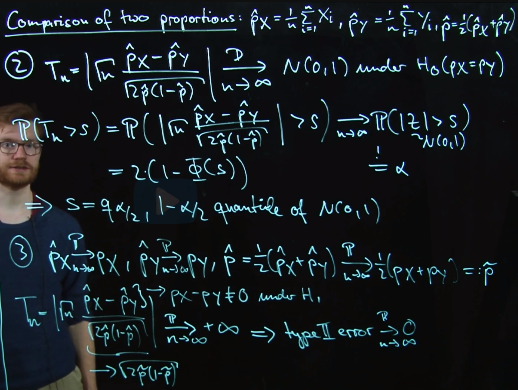 Comparison of two proportions: p̂_X = 1/n Σ_{i=1}^n X_i, p̂_Y = 1/n Σ_{i=1}^n Y_i, p̂ = ½(p̂_X + p̂_Y)
② T_n = |√n (p̂_X − p̂_Y)/√(2p̂(1−p̂))| →^D_{n→∞} N(0,1) under H_0 (p_X = p_Y)
ℙ(T_n > s) = ℙ(|√n (p̂_X − p̂_Y)/√(2p̂(1−p̂))| > s) →_{n→∞} ℙ(|Z| > s)
~N(0,1)
= 2(1 − Φ(s)) =^! α
⇒ s = q_{α/2}, 1 − α/2 quantile of N(0,1)
③ p̂_X →^ℙ_{n→∞} p_X, p̂_Y →^ℙ_{n→∞} p_Y, p̂ = ½(p̂_X + p̂_Y) →^ℙ_{n→∞} ½(p_X + p_Y) =: p̃
T_n = |√n (p̂_X − p̂_Y)/√(2p̂(1−p̂))| } → p_X − p_Y ≠ 0 under H_1
→^ℙ_{n→∞} +∞ ⇒ type II error →^ℙ_{n→∞} 0
→ √(2p̃(1−p̃))